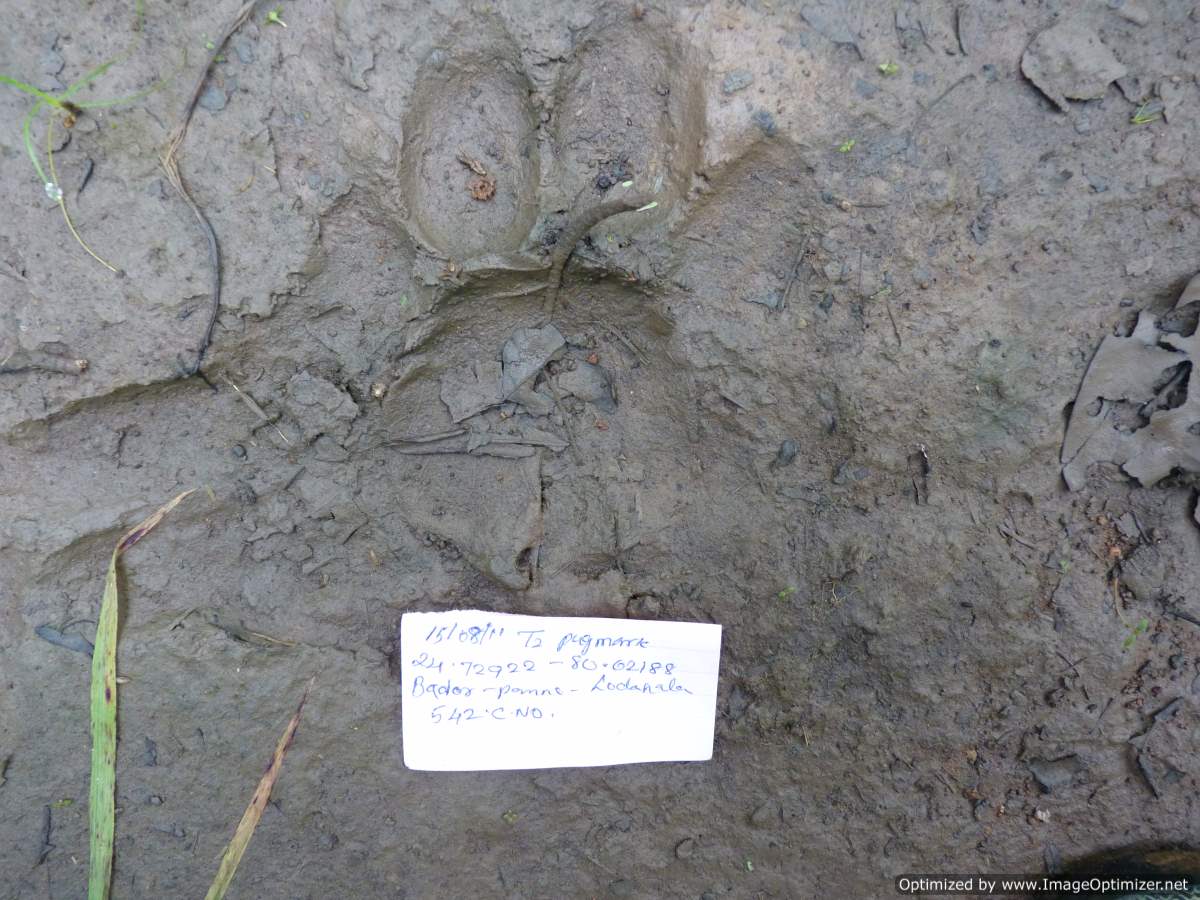 15/08/11 T2 pugmark
24.72922 - 80.02188
Bador - - Lodanala
542.C.NO.
Optimized by www.ImageOptimizer.net